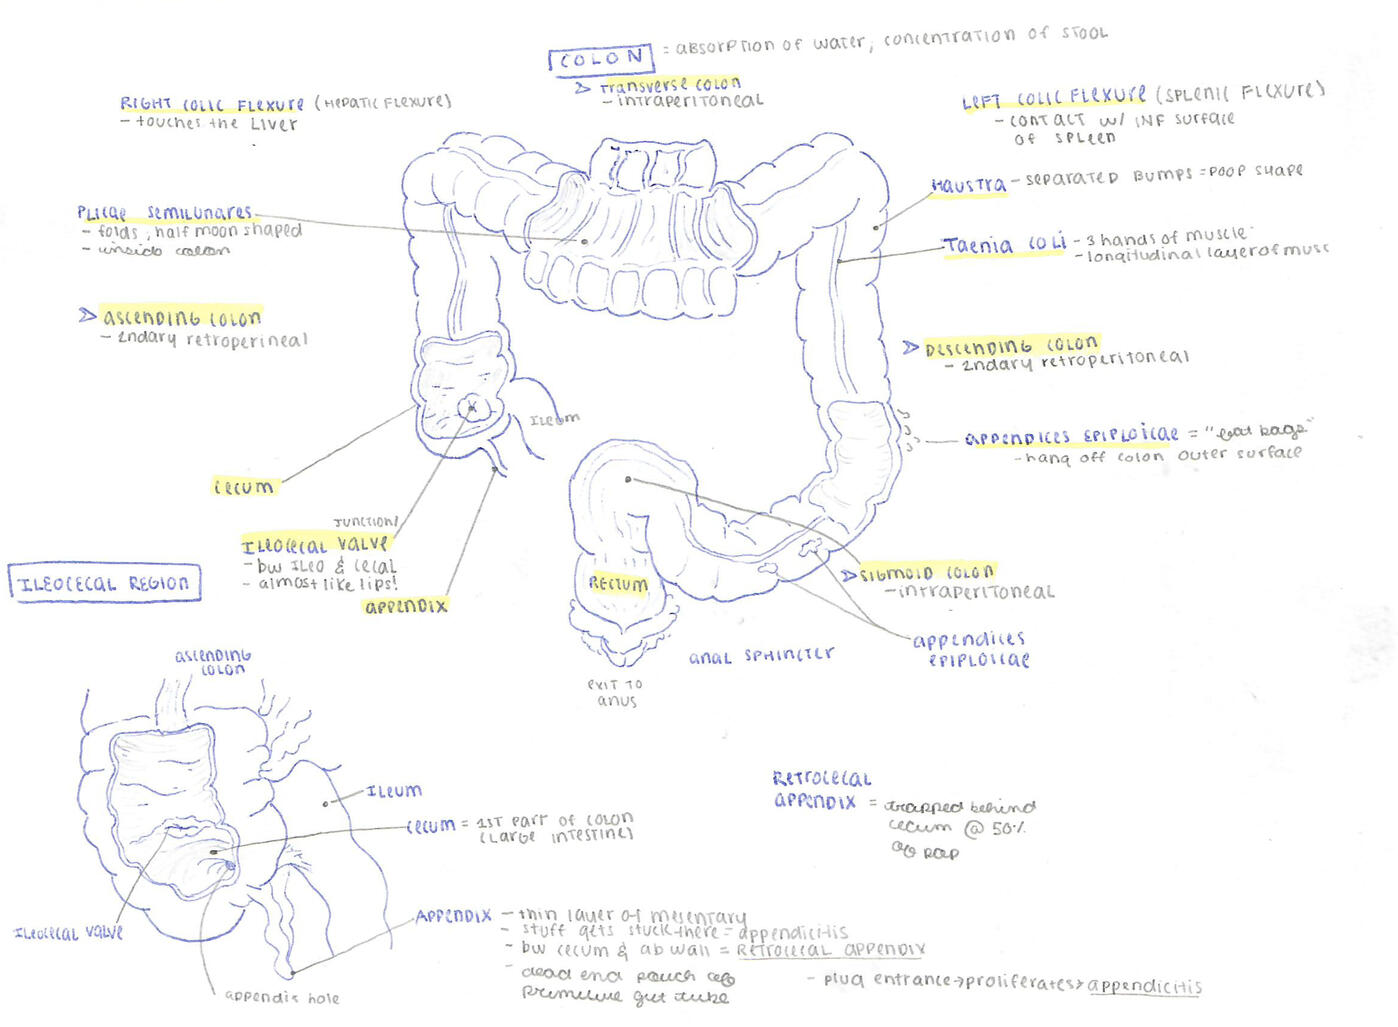 COLON = absorption of water, concentration of stool
> Transverse colon
- intraperitoneal
Right colic flexure (Hepatic flexure)
- touches the Liver
Left colic flexure (splenic flexure)
- contact w/ inf surface
of spleen
Haustra - separated bumps = poop shape
Plicae semilunares
- folds, half moon shaped
- inside colon
Taenia coli - 3 bands of muscle
- longitudinal layer of musc
> ascending colon
- 2ndary retroperineal
> Descending colon
- 2ndary retroperitoneal
Ileum
appendices epiploicae = "fat bags"
- hang off colon outer surface
cecum
junction/
Ileocecal valve
- bw ileo & cecal
- almost like lips!
appendix
ILEOCECAL REGION
Rectum
> sigmoid colon
- intraperitoneal
appendices
epiploicae
anal sphincter
exit to
anus
ascending
colon
Ileum
cecum = 1st part of colon
(large intestine)
Retrocecal
appendix = trapped behind
cecum @ 50%
of pop
Ileocecal valve
appendis hole
Appendix - thin layer of mesentary
- stuff gets stuck there = appendicitis
- bw cecum & ab wall = Retrocecal appendix
- dead end pouch of
primitive gut tube
- plug entrance → proliferates → appendicitis